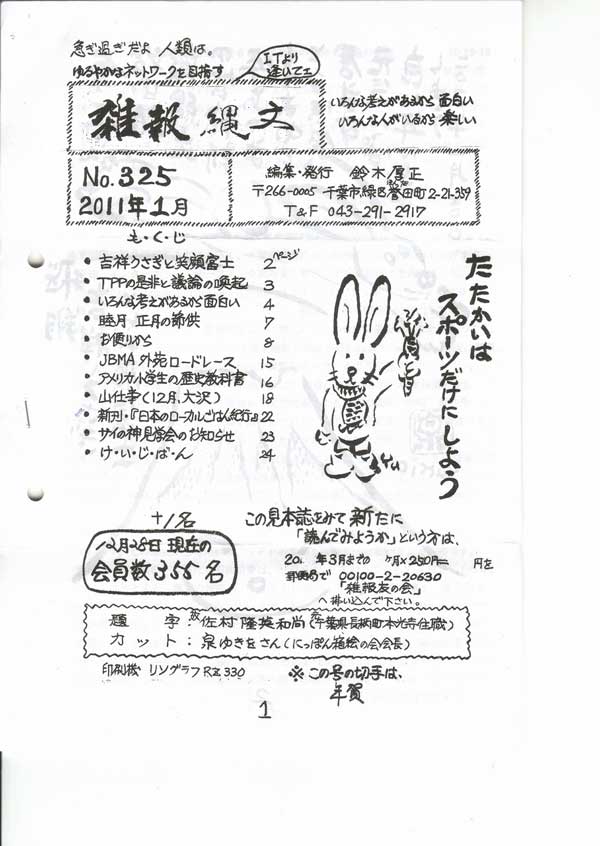 急ぎ過ぎだよ 人類は。
ゆるやかなネットワークを目指す
ITより
逢いてェ
雑報 縄文
いろんな考えがあるから 面白い
いろんな人がいるから 楽しい
No.325
2011年1月
編集・発行 鈴木厚正
〒266-0005 千葉市緑区誉田町2-21-359
T&F 043-291-2917
も・く・じ
・吉祥うさぎと笑顔富士 2ページ
・TPPの是非と議論の喚起 3
・いろんな考えがあるから面白い 4
・睦月 正月の節供 7
・お便りから 8
・JBMA 外苑ロードレース 15
・アメリカ小学生の歴史教科書 16
・山仕事(12月、大沢) 18
・新刊・『日本のローカルごはん紀行』 22
・サイの神見学会のお知らせ 23
・け・い・じ・ば・ん 24
たたかいは
スポーツだけにしよう
Yu
+1名
12月28日 現在の
会員数355名
この見本誌をみて 新たに
「読んでみようか」という方は、
20 年3月までの ヶ月×250円= 円を
郵便局で 00100-2-20630
「雑報友の会」
へ振り込んで下さい。
題 字 故佐村隆英和尚(千葉県長柄町本光寺住職)
カット:泉ゆきをさん(にっぽん箱絵の会会長)
印刷機 リソグラフRZ330
※この号の切手は、
年賀
1